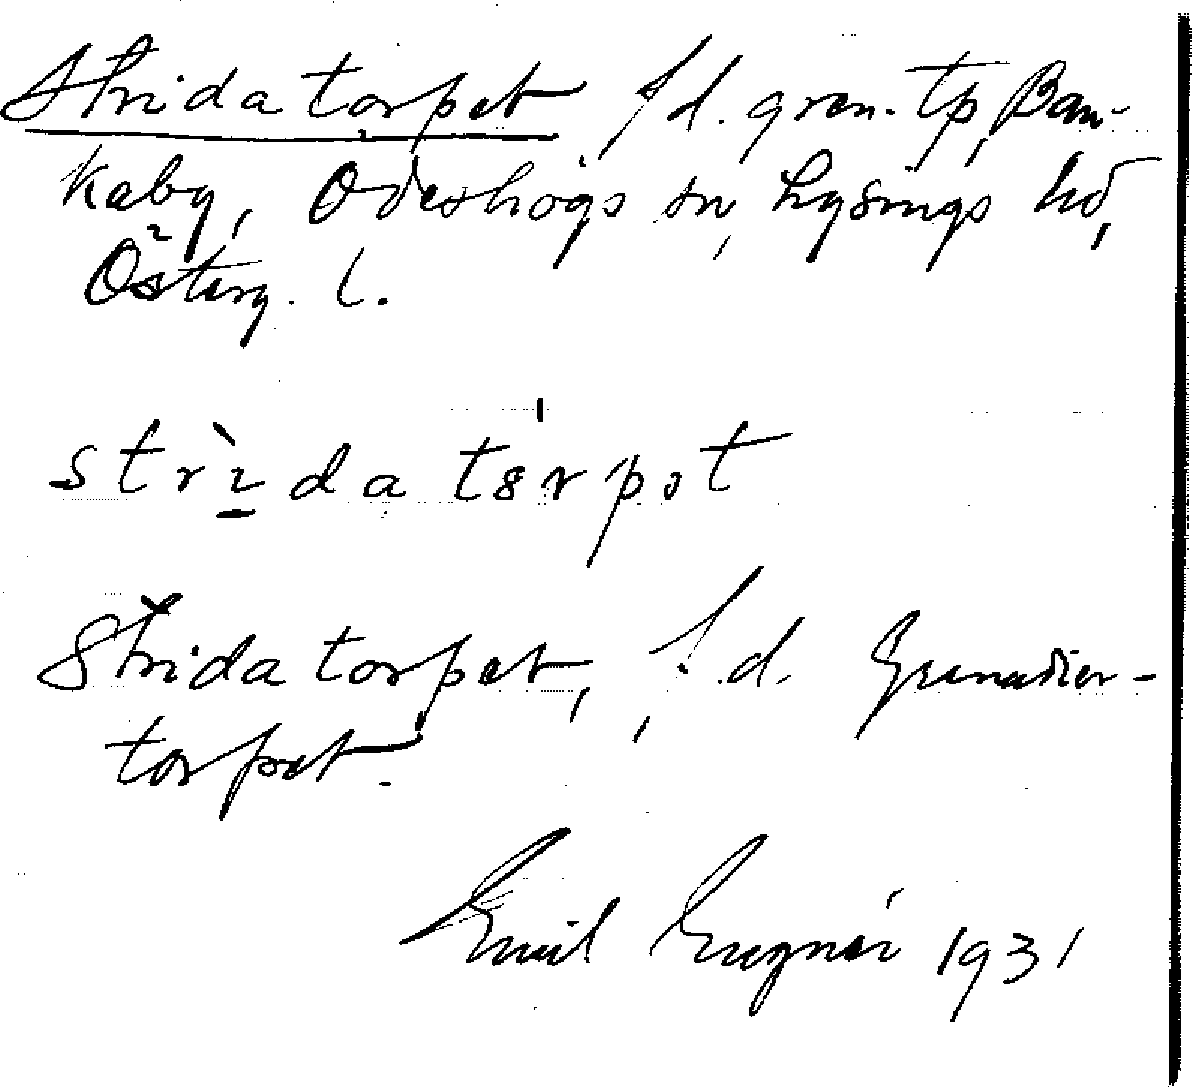 Stridatorpet f.d. gren. tp, Ban-
kaby, Ödeshögs sn, Lysings hd,
Österg. l.
strìda tɵrpət
Stridatorpet, f.d. Grenadier-
torpet.
Emil 1931